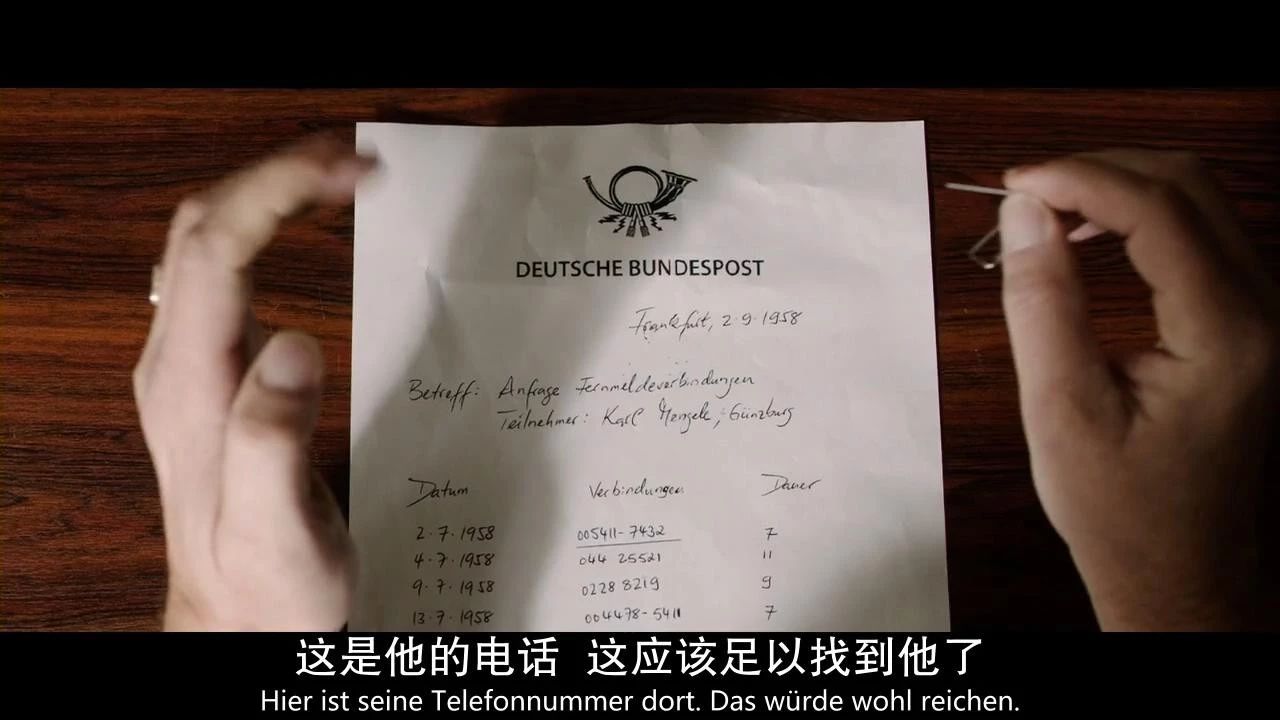 DEUTSCHE BUNDESPOST
Frankfurt, 2.9.1958
Betreff: Anfrage Fernmeldeverbindungen
Teilnehmer: Karl Mengele, Günzburg
Datum Verbindungen Dauer
2.7.1958 005411-7432 7
4.7.1958 044 25521 11
9.7.1958 0228 8219 9
13.7.1958 004478-5411 7
这是他的电话 这应该足以找到他了
Hier ist seine Telefonnummer dort. Das würde wohl reichen.